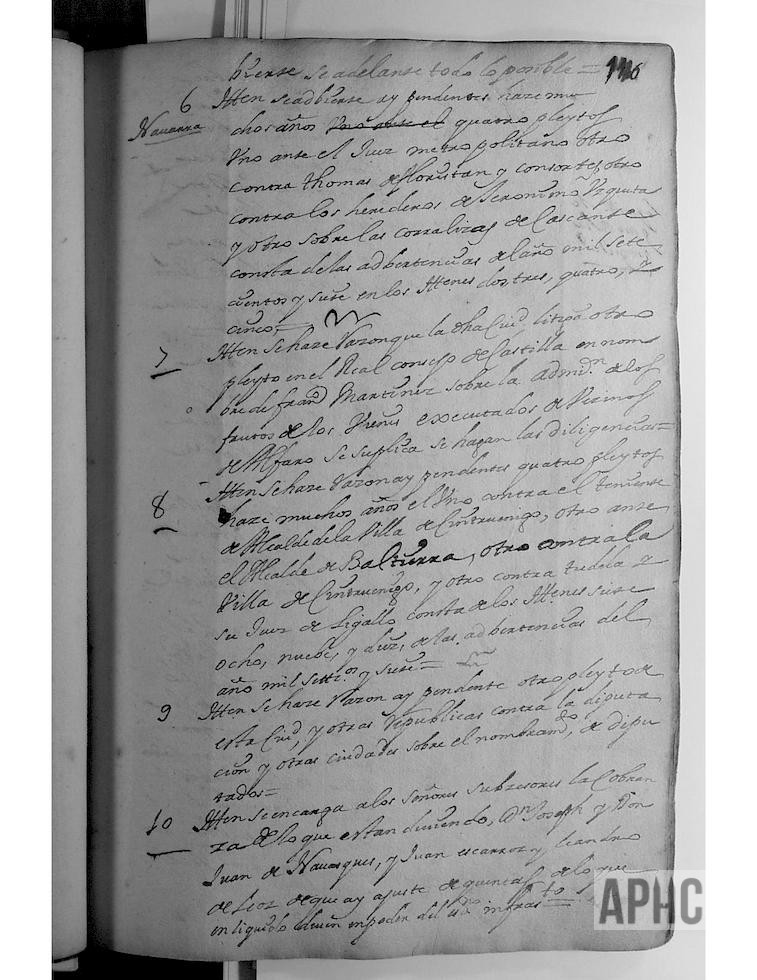 bierse se adelante todo lo posible = 146
6 Itten se adbierte ay pendentes haze mu
Nauarra
chos años Uno ante el quatro pleytos
Uno ante el Juez metropolitano otro
contra thomas de floristan y consortes, otro
contra los herederos de Jeronimo Urquita
y otro sobre las corralizas de Cascante
consta de las adbertencias del año mil sete
cientos y siete en los Ittenes dos tres, quatro, y
cinco =
7 Itten se haze Razon que la dha Ciud litiga otro
pleyto en el Real consejo de Castilla en nom
bre de franco Martinez sobre la admon de los
frutos de los Vienes executados de Vezinos
de Alfaro se suplica se hagan las diligencias =
8 Itten se haze Razon ay pendentes quatro pleytos
haze muchos años el Uno contra el teniente
de Alcalde de la Villa de Cintruenigo, otro ante
el Alcalde de Baltierra, otro contra la
Villa de Cintruenigo, y otro contra tudela y
su Juez de Ligallo consta de los Ittenes siete
ocho, nuebe, y diez, de las adbertencias del
año mil settos y siete =
9 Itten se haze Razon ay pendente otro pleyto de
esta Ciud, y otras Republicas contra la diputa
cion y otras ciudades sobre el nombramto, de dipu
tados =
10 Itten se encarga a los señores subzesores la Cobran
za de lo que estan diuiendo, Dn Joseph y Don
Juan de Nauasques, y Juan escarroz y leandro
de Leoz de que ay ajuste de quentas de lo que
en liquido deuen en poder del sno infrasto =
APHC